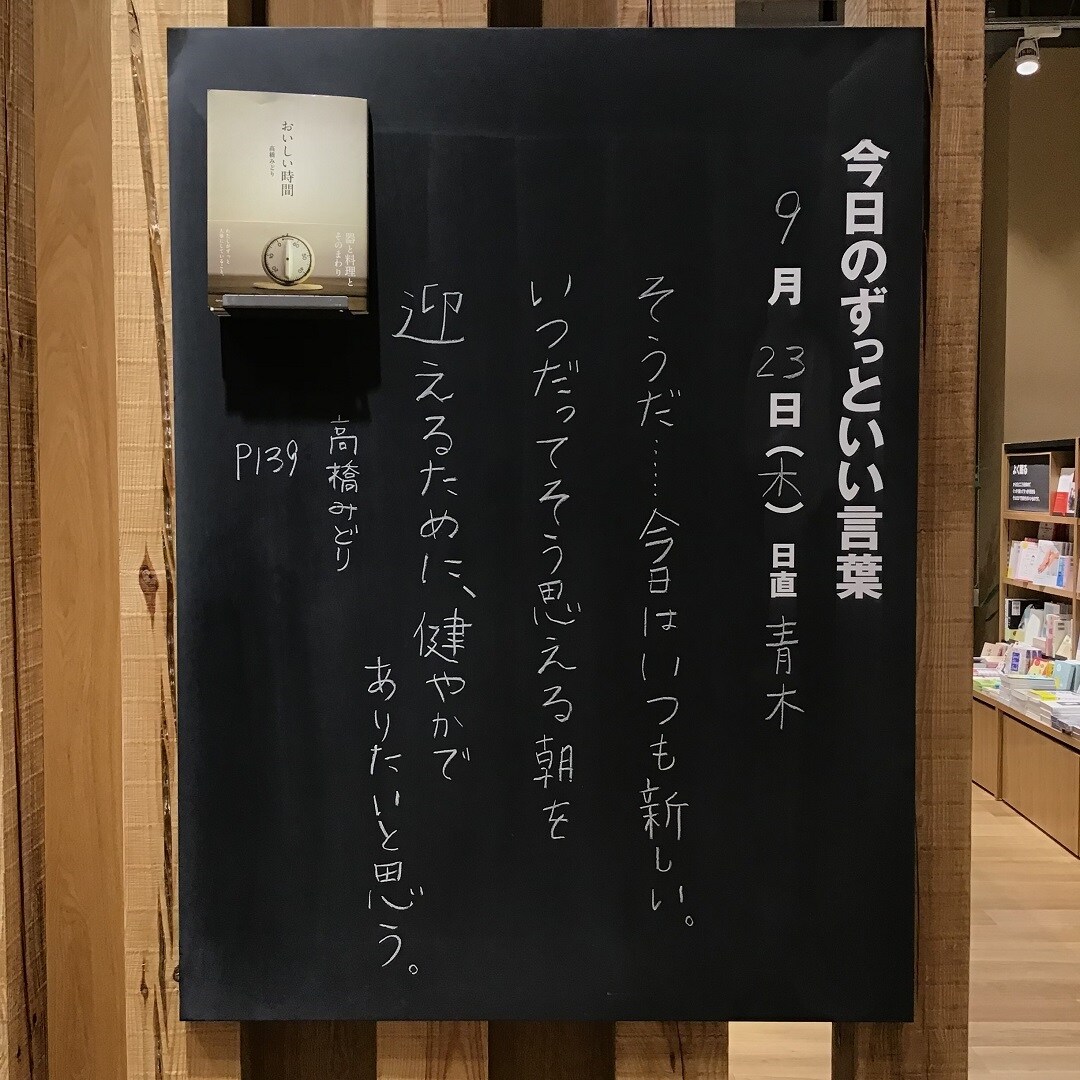 今日のずっといい言葉
9月23日(木) 日直 青木
そうだ……今日はいつも新しい。
いつだってそう思える朝を
迎えるために、健やかで
ありたいと思う。
高橋みどり
P139
おいしい時間
高橋みどり
器と料理と
そのまわり
よく眠る